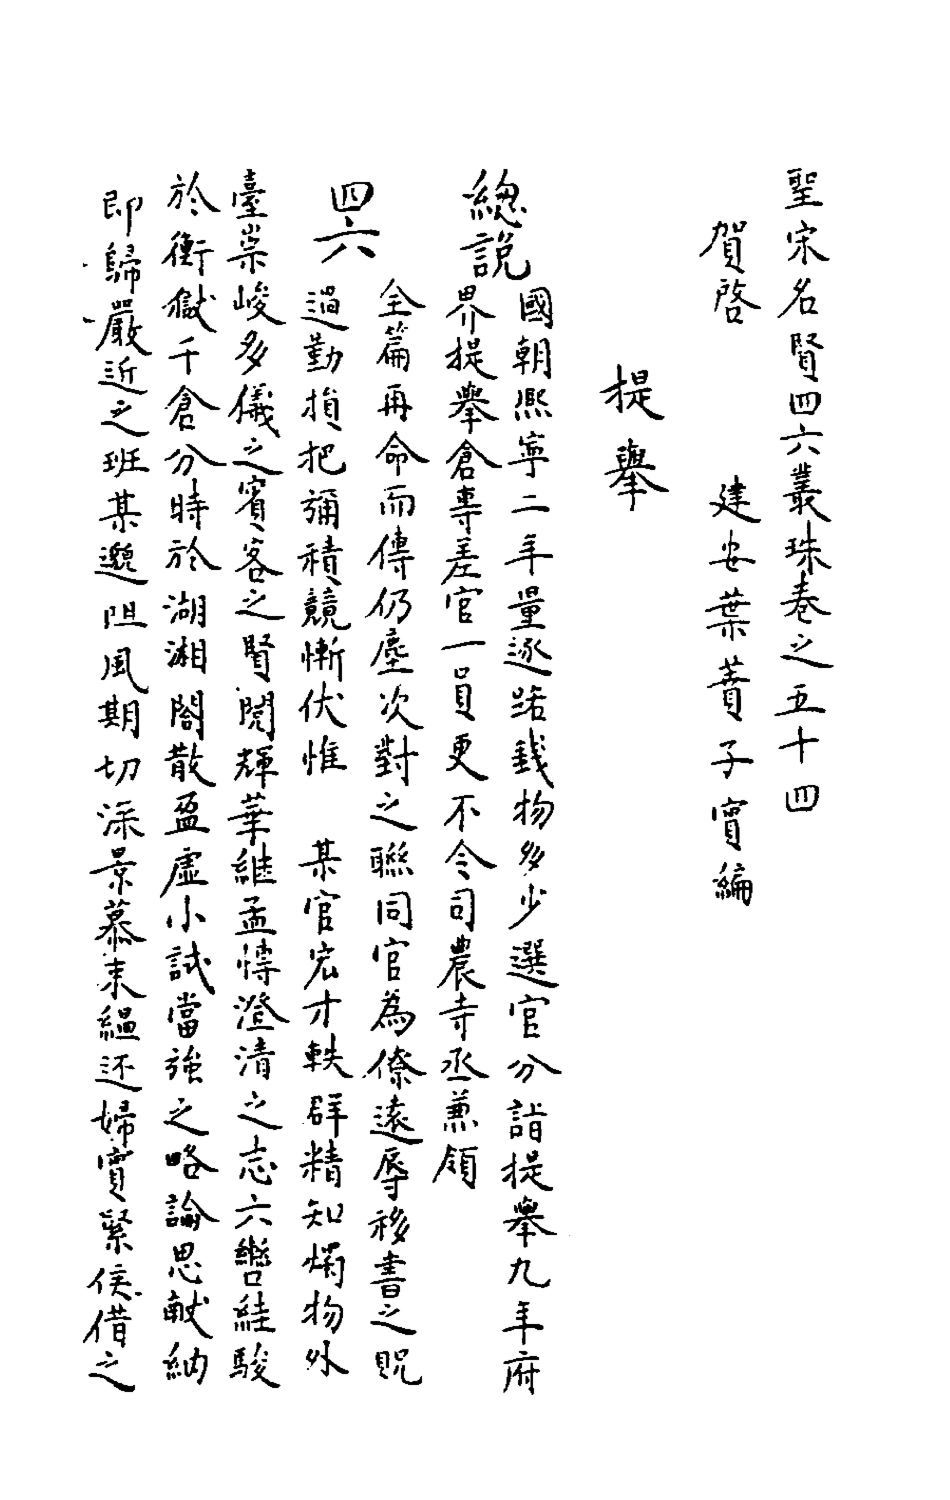 聖宋名賢四六叢珠卷之五十四
賀啓　建安葉蕡子實編
提舉
總說
國朝熙寧二年量逐路錢物多少選官分詣提舉九年府
界提舉倉專差官一員更不令司農寺丞兼領
四六
全篇再命而傳仍塵次對之聯同官為僚遠辱移書之貺
過勤損把彌積競慚伏惟　某官宏才軼群精知燭物外
臺崇峻多儀之賓客之賢閱輝華継孟愽澄清之志六轡絓駿
於衡嶽千倉分時於湖湘閤散盈虛小試當強之略論思献納
即歸嚴近之班某邈阻風期切深景慕耒緼还婦實緊俟借之